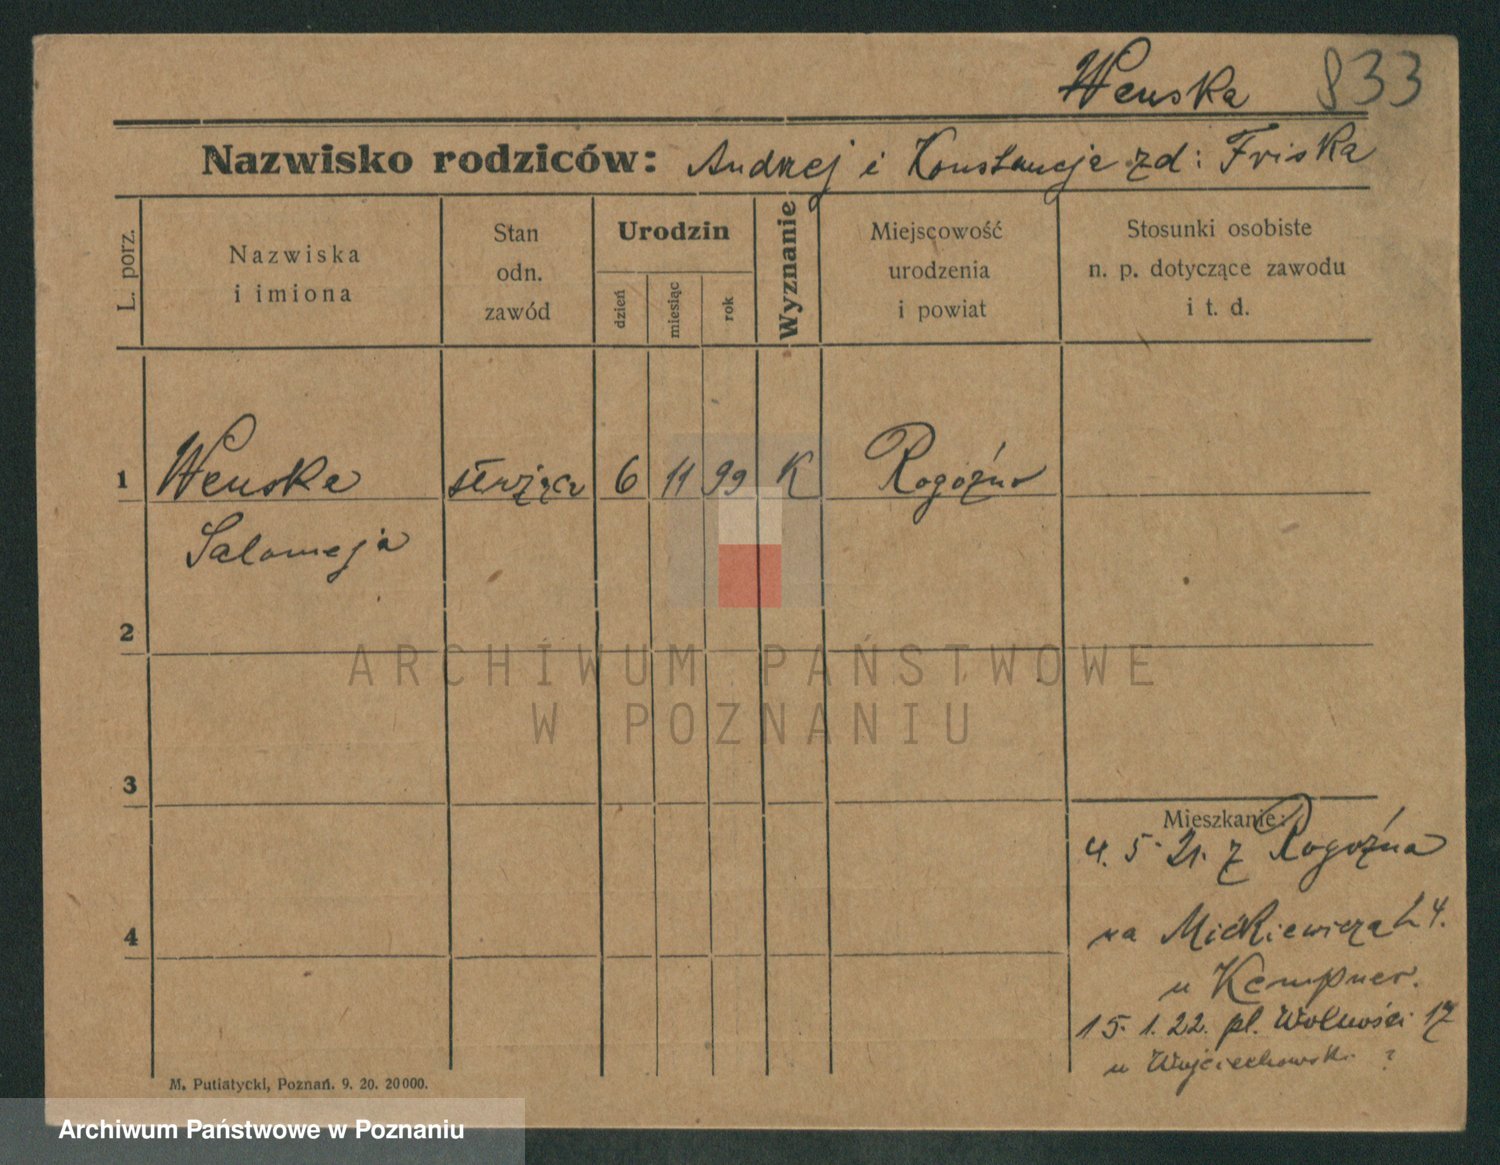 Wenska 833
Nazwisko rodziców: Andrzej i Konstancja zd: Friska
L. porz.
Nazwiska
i imiona
Stan
odn.
zawód
Urodzin
dzień
miesiąc
rok
Wyznanie
Miejscowość
urodzenia
i powiat
Stosunki osobiste
n. p. dotyczące zawodu
i t. d.
1 Wenska służąca 6 11 99 K Rogóźno
Salomeja
2
ARCHIWUM PAŃSTWOWE
W POZNANIU
3
Mieszkanie:
4. 5. 21. z Rogoźna
4
na Mickiewicza 24.
u Kempner.
15. 1. 22. pl. Wolności 17
u Wojciechowski ?
M. Putiatycki, Poznań. 9. 20. 20000.
Archiwum Państwowe w Poznaniu